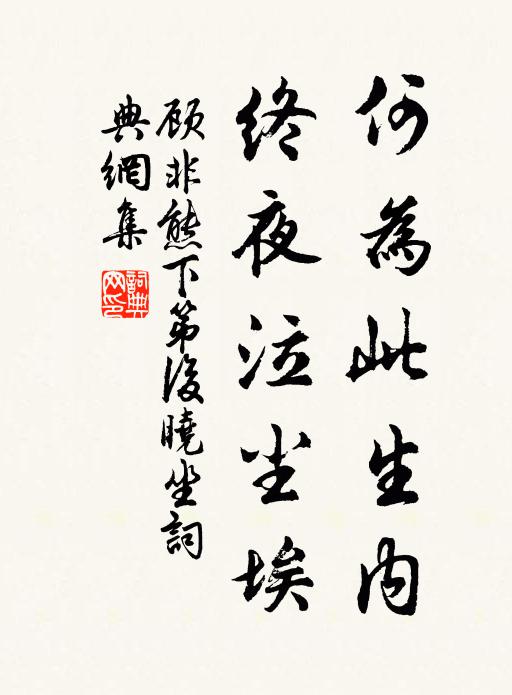 何為此生內
終夜泣尘埃
顾非熊下第後曉坐詞
典網集
詞典网印